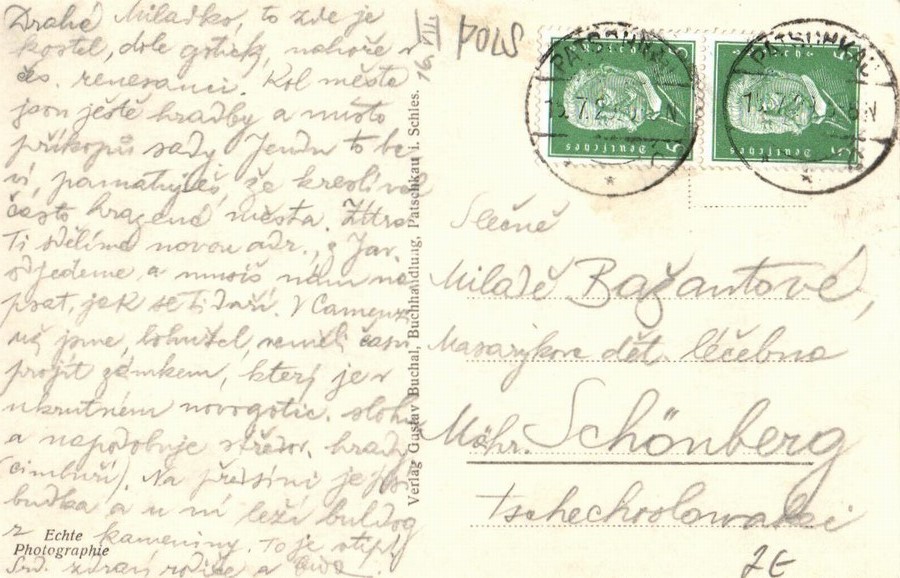 Drahá Miladko, to zde je
kostel, dole gotick, nahoře v
čes. renesanci. Kol města
jsou ještě hradby a místo
příkopů sady. Jendu to ba-
ví, pamatuješ, že kreslíval
často hrazená města. Zítra
Ti sdělíme novou adr., Jar.
odjedeme a musíš nám na-
psat, jak se ti daří. V Camenz
už jsme, bohužel neměli času
projít zámkem, který je v
ukrutném novogotic. slohu
a napodobuje středov. hrady
(cimbuří). Na předsíni je psí
budka a u ní leží buldog
z kameniny. To je
Srd. zdraví rodiče a
Echte
Photographie
Verlag Gustav Buchal, Buchhandlung, Patschkau i. Schles.
16. VII
PATSCHKAU
PATSCHKAU
Deutsches
Deutsches
5
5
Slečně
Miladě Bažantové,
Masarykova dět. léčebna
Mähr. Schönberg
Tschechoslowakei